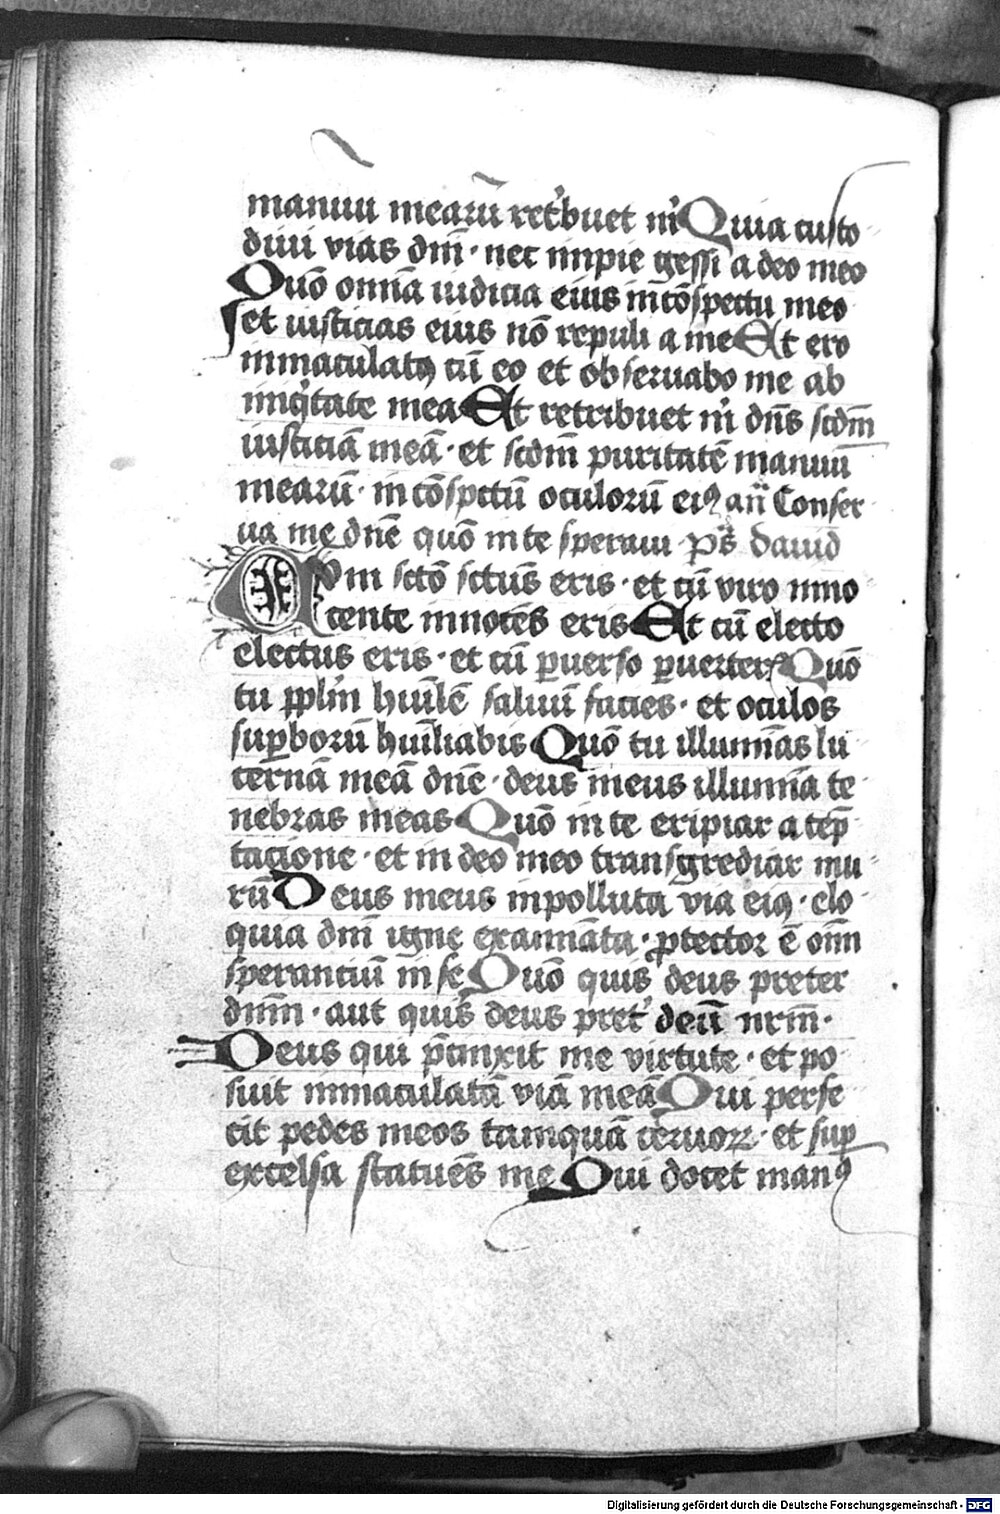 manuu mearū ret͛buet m͛ Quia custo
diui vias dn̄i · nec inpie gessi a deo meo
Quō omnā iudicia eius in cōspectu meo
et iusticias eius nō repuli a me Et ero
inmaculatꝰ cū eo et obseruabo me ab
iniqͥtate mea Et retribuet m͛ dn̄s scdm̄
iusticiā meā · et scdm̄ puritatē manuū
mearū · in cōspctū oculorū eiꝰ an̄ Conser
ua me dn̄e quō in te speraui ps̄ dauid
Cum sctō sctus̄ eris · et cū viro inno
cente innocēs eris Et cū electo
electus eris · et cū ꝑuerso ꝑuerterꝭ Quō
tu ppl̄m hūilē saluū facies · et oculos
suꝑborū hūiliabis Quō tu illumīas lu
cernā meā dn̄e · deus meus illumīa te
nebras meas Quō in te eripiar a tēp
tacione · et in deo meo transgrediar mu
rū Deus meus inpolluta via eiꝰ · elo
quia dn̄i igne exanīata · ꝓtector ē oīm
sperantiū in se Quō quis deus preter
dn̄m · aut quis deus pret͛ deū nr̄m ·
Deus qui p̄cinxit me virtute · et po
suit inmaculatā viā meā Qui perfe
cit pedes meos tamquā ceruoꝝ · et suꝑ
excelsa statuēs me Qui docet manꝰ
Digitalisierung gefördert durch die Deutsche Forschungsgemeinschaft - DFG